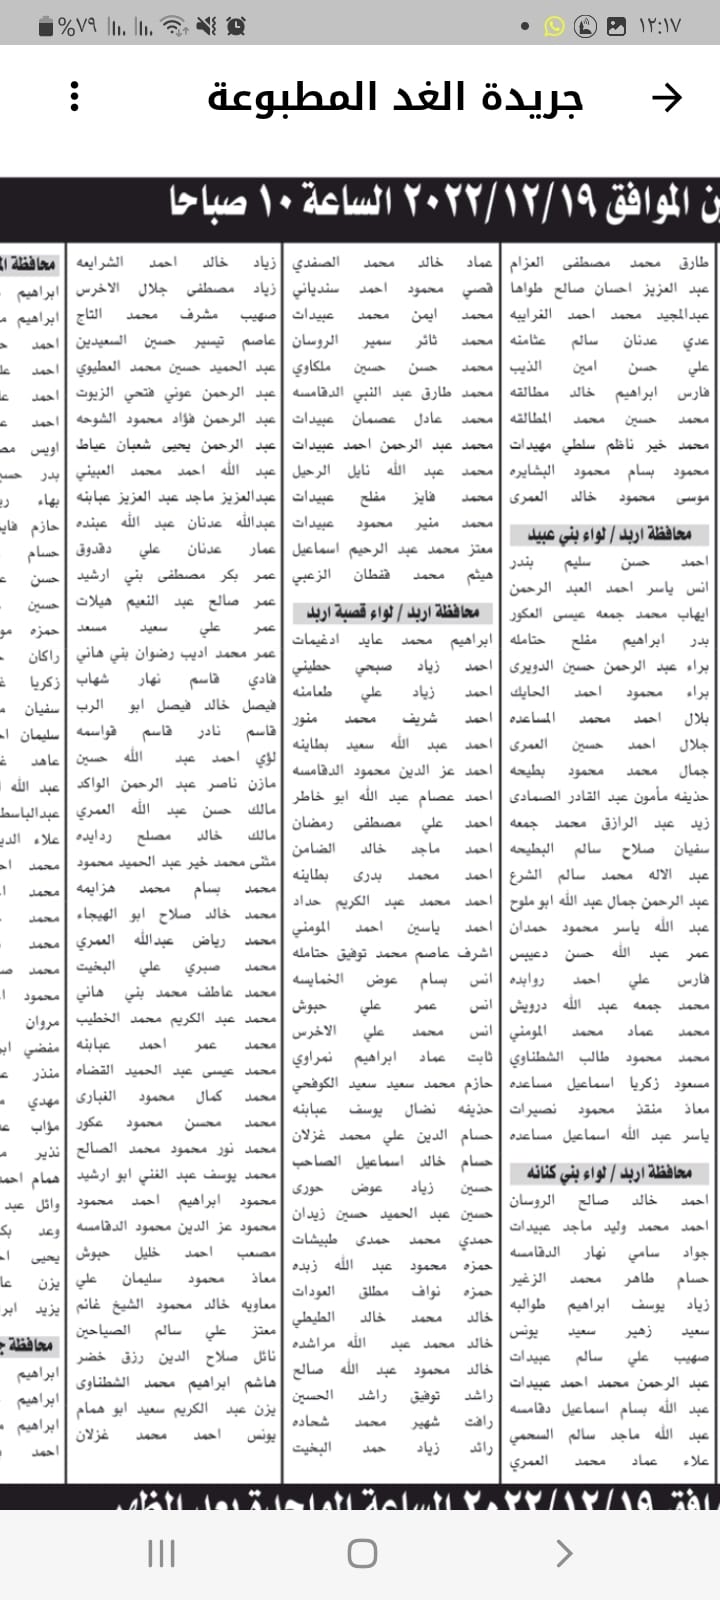 ١٢:١٧
%٧٩
جريدة الغد المطبوعة
ن الموافق ٢٠٢٢/١٢/١٩ الساعة ١٠ صباحا
طارق محمد مصطفى العزام
عبد العزيز احسان صالح طواها
عبدالمجيد محمد احمد الغرايبه
عدي عدنان سالم عثامنه
علي حسن امين الذيب
فارس ابراهيم خالد مطالقه
محمد حسين محمد المطالقه
محمد خير ناظم سلطي مهيدات
محمود بسام محمود البشايره
موسى محمود خالد العمرى
محافظة اربد / لواء بني عبيد
احمد حسن سليم بندر
انس ياسر احمد العبد الرحمن
ايهاب محمد جمعه عيسى العكور
بدر ابراهيم مفلح حتامله
براء عبد الرحمن حسين الدويرى
براء محمود احمد الحايك
بلال احمد محمد المساعده
جلال احمد حسين العمرى
جمال محمد محمود بطيحه
حذيفه مأمون عبد القادر الصمادى
زيد عبد الرازق محمد جمعه
سفيان صلاح سالم البطيحه
عبد الاله محمد سالم الشرع
عبد الرحمن جمال عبد الله ابو ملوح
عبد الله ياسر محمود حمدان
عمر عبد الله حسن دعيبس
فارس علي احمد روابده
محمد جمعه عبد الله درويش
محمد عماد محمد المومني
محمد محمود طالب الشطناوي
مسعود زكريا اسماعيل مساعده
معاذ منقذ محمود نصيرات
ياسر عبد الله اسماعيل مساعده
محافظة اربد / لواء بني كنانه
احمد خالد صالح الروسان
احمد محمد وليد ماجد عبيدات
جواد سامي نهار الدقامسه
حسام طاهر محمد الزغير
زياد يوسف ابراهيم طوالبه
سعيد زهير سعيد يونس
صهيب علي سالم عبيدات
عبد الرحمن محمد احمد عبيدات
عبد الله بسام اسماعيل دقامسه
عبد الله ماجد سالم السحمي
علاء عماد محمد العمري
عماد خالد محمد الصفدي
قصي محمود احمد سندياني
محمد ايمن محمد عبيدات
محمد ثائر سمير الروسان
محمد حسن حسين ملكاوي
محمد طارق عبد النبي الدقامسه
محمد عادل عصمان عبيدات
محمد عبد الرحمن احمد عبيدات
محمد عبد الله نايل الرحيل
محمد فايز مفلح عبيدات
محمد منير محمود عبيدات
معتز محمد عبد الرحيم اسماعيل
هيثم محمد قفطان الزعبي
محافظة اربد / لواء قصبة اربد
ابراهيم محمد عايد ادغيمات
احمد زياد صبحي حطيني
احمد زياد علي طعامنه
احمد شريف محمد منور
احمد عبد الله سعيد بطاينه
احمد عز الدين محمود الدقامسه
احمد عصام عبد الله ابو خاطر
احمد علي مصطفى رمضان
احمد ماجد خالد الضامن
احمد محمد بدرى بطاينه
احمد محمد عبد الكريم حداد
احمد ياسين احمد المومني
اشرف عاصم محمد توفيق حتامله
انس بسام عوض الخمايسه
انس عمر علي حبوش
انس محمد علي الاخرس
ثابت عماد ابراهيم نمراوي
حازم محمد سعيد سعيد الكوفحي
حذيفه نضال يوسف عبابنه
حسام الدين علي محمد غزلان
حسام خالد اسماعيل الصاحب
حسين زياد عوض حورى
حسين عبد الحميد حسين زيدان
حمدي محمد حمدى طبيشات
حمزه محمود عبد الله زيده
حمزه نواف مطلق العودات
خالد محمد خالد الطيطي
خالد محمد عبد الله مراشده
خالد محمود عبد الله صالح
راشد توفيق راشد الحسين
رافت شهير محمد شحاده
رائد زياد حمد البخيت
زياد خالد احمد الشرايعه
زياد مصطفى جلال الاخرس
صهيب مشرف محمد التاج
عاصم تيسير حسين السعيدين
عبد الحميد حسين محمد العطيوي
عبد الرحمن عوني فتحي الزيوت
عبد الرحمن فؤاد محمود الشوحه
عبد الرحمن يحيى شعبان عياط
عبد الله احمد محمد العبيني
عبدالعزيز ماجد عبد العزيز عبابنه
عبدالله عدنان عبد الله عبنده
عمار عدنان علي دقدوق
عمر بكر مصطفى بني ارشيد
عمر صالح عبد النعيم هيلات
عمر علي سعيد مسعد
عمر محمد اديب رضوان بني هاني
فادي قاسم نهار شهاب
فيصل خالد فيصل ابو الرب
قاسم نادر قاسم قواسمه
لؤي احمد عبد الله حسين
مازن ناصر عبد الرحمن الواكد
مالك حسن عبد الله العمري
مالك خالد مصلح ردايده
مثنى محمد خير عبد الحميد محمود
محمد بسام محمد هزايمه
محمد خالد صلاح ابو الهيجاء
محمد رياض عبدالله العمري
محمد صبري علي البخيت
محمد عاطف محمد بني هاني
محمد عبد الكريم محمد الخطيب
محمد عمر احمد عبابنه
محمد عيسى عبد الحميد القضاه
محمد كمال محمود الغبارى
محمد محسن محمود عكور
محمد نور محمود محمد الصالح
محمد يوسف عبد الغني ابو ارشيد
محمود ابراهيم احمد محمود
محمود عز الدين محمود الدقامسه
مصعب احمد خليل حبوش
معاذ محمود سليمان علي
معاويه خالد محمود الشيخ غانم
معتز علي سالم الصباحين
نائل صلاح الدين رزق خضر
هاشم ابراهيم محمد الشطناوى
يزن عبد الكريم سعيد ابو همام
يونس احمد محمد غزلان
محافظة
ابراهيم
ابراهيم
احمد
احمد
احمد
احمد
اويس
بدر
بهاء
حازم
حسام
حسن
حسين
حمزه
راكان
زكريا
سفيان
سليمان
عاهد
عبد الله
عبدالباسط
علاء
محمد
محمد
محمد
محمد
محمد
محمود
مروان
مفضي
منذر
مهدي
مؤاب
نذير
همام
وائل
وعد
يحيى
يزن
يزيد
محافظة
ابراهيم
ابراهيم
ابراهيم
احمد
افق ٢٠٢٢/١٢/١٩ الساعة الواحدة بعد الظهر